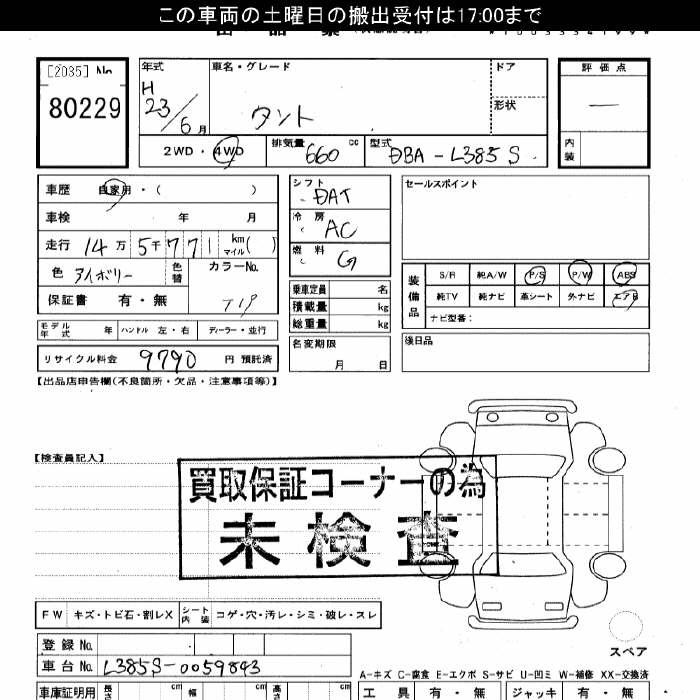 この車両の土曜日の搬出受付は17:00まで
[2035] No
80229
年式 車名・グレード ドア 評価点
H 23/6月 タント 形状 —
2WD・4WD 排気量 660 cc 型式 DBA-L385S 内装
車歴 自家用・( ) シフト DAT セールスポイント
車検 年 月 冷房 AC
走行 14万5千771 km マイル( ) 燃料 G
色 アイボリー 色替 カラーNo. T19
保証書 有・無
乗車定員 名
積載量 kg
総重量 kg
装備品 S/R 純A/W P/S P/W ABS
純TV 純ナビ 革シート 外ナビ エアB
ナビ型番:
モデル年式 年 ハンドル 左・右 ディーラー・並行
名変期限 月 日
後日品
リサイクル料金 9790 円 預託済
【出品店申告欄(不良箇所・欠品・注意事項等)】
【検査員記入】
買取保証コーナーの為
未検査
FW キズ・トビ石・割レX シート内装 コゲ・穴・汚レ・シミ・破レ・スレ
登録No.
スペア
車台No. L385S-0059843
A-キズ C-腐食 E-エクボ S-サビ U-凹ミ W-補修 XX-交換済
車庫証明用 長さ cm 幅 cm 高さ cm 工具 有・無 ジャッキ 有・無